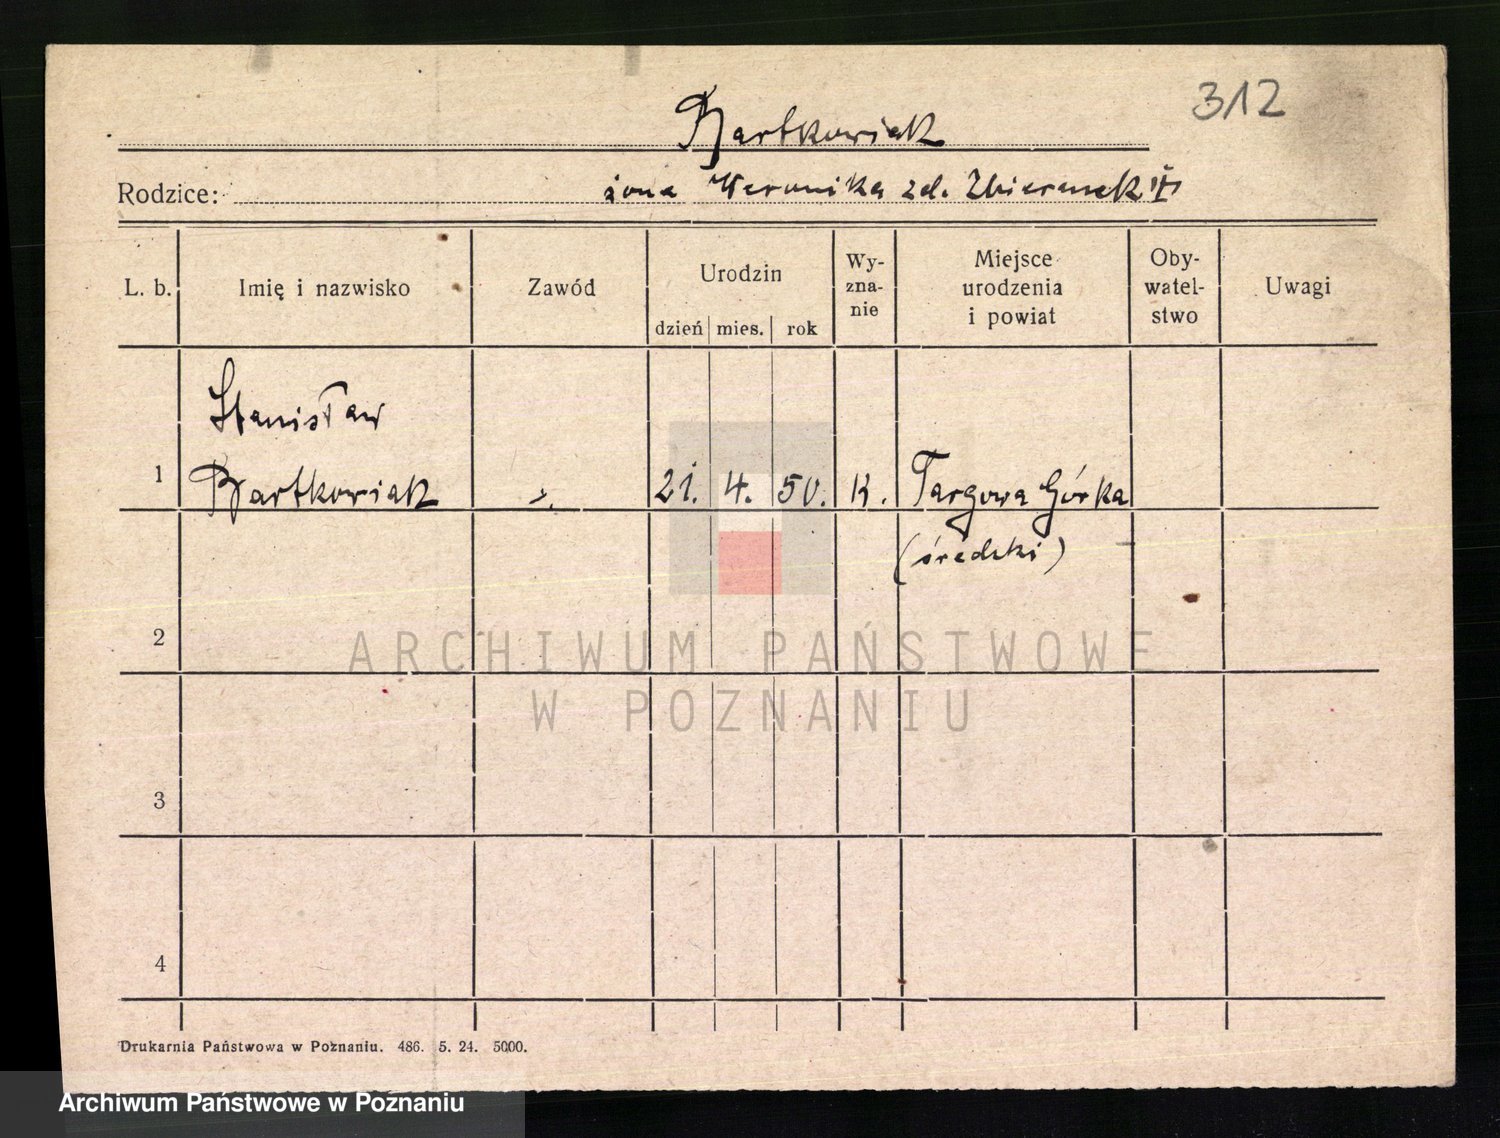 312
Bartkowiak
Rodzice: żona Weronika zd.
L. b. Imię i nazwisko Zawód Urodzin dzień mies. rok Wy-zna-nie Miejsce urodzenia i powiat Oby-watel-stwo Uwagi
Stanisław
1 Bartkowiak 21. 4. 50. K. Targowa Górka
(średzki)
2
ARCHIWUM PAŃSTWOWE
W POZNANIU
3
4
Drukarnia Państwowa w Poznaniu. 486. 5. 24. 5000.
Archiwum Państwowe w Poznaniu